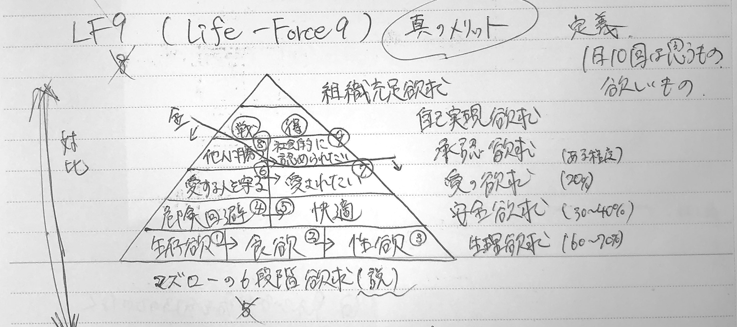 LF9 (Life-Force9) 真のメリット 定義
8
1日10回は思うもの
欲しいもの
組織充足欲求
自己実現欲求
対比
戦 得
他人に勝 ⑧ 社会的に認められたい ⑨ 承認欲求 (ある程度)
愛する人を守る ⑥ 愛されたい ⑦ 愛の欲求 (20%)
危険回避 ④ ⑤ 快適 安全欲求 (30~40%)
生存欲 ① 食欲 ② 性欲 ③ 生理欲求 (60~70%)
マズローの6段階欲求(説)
5